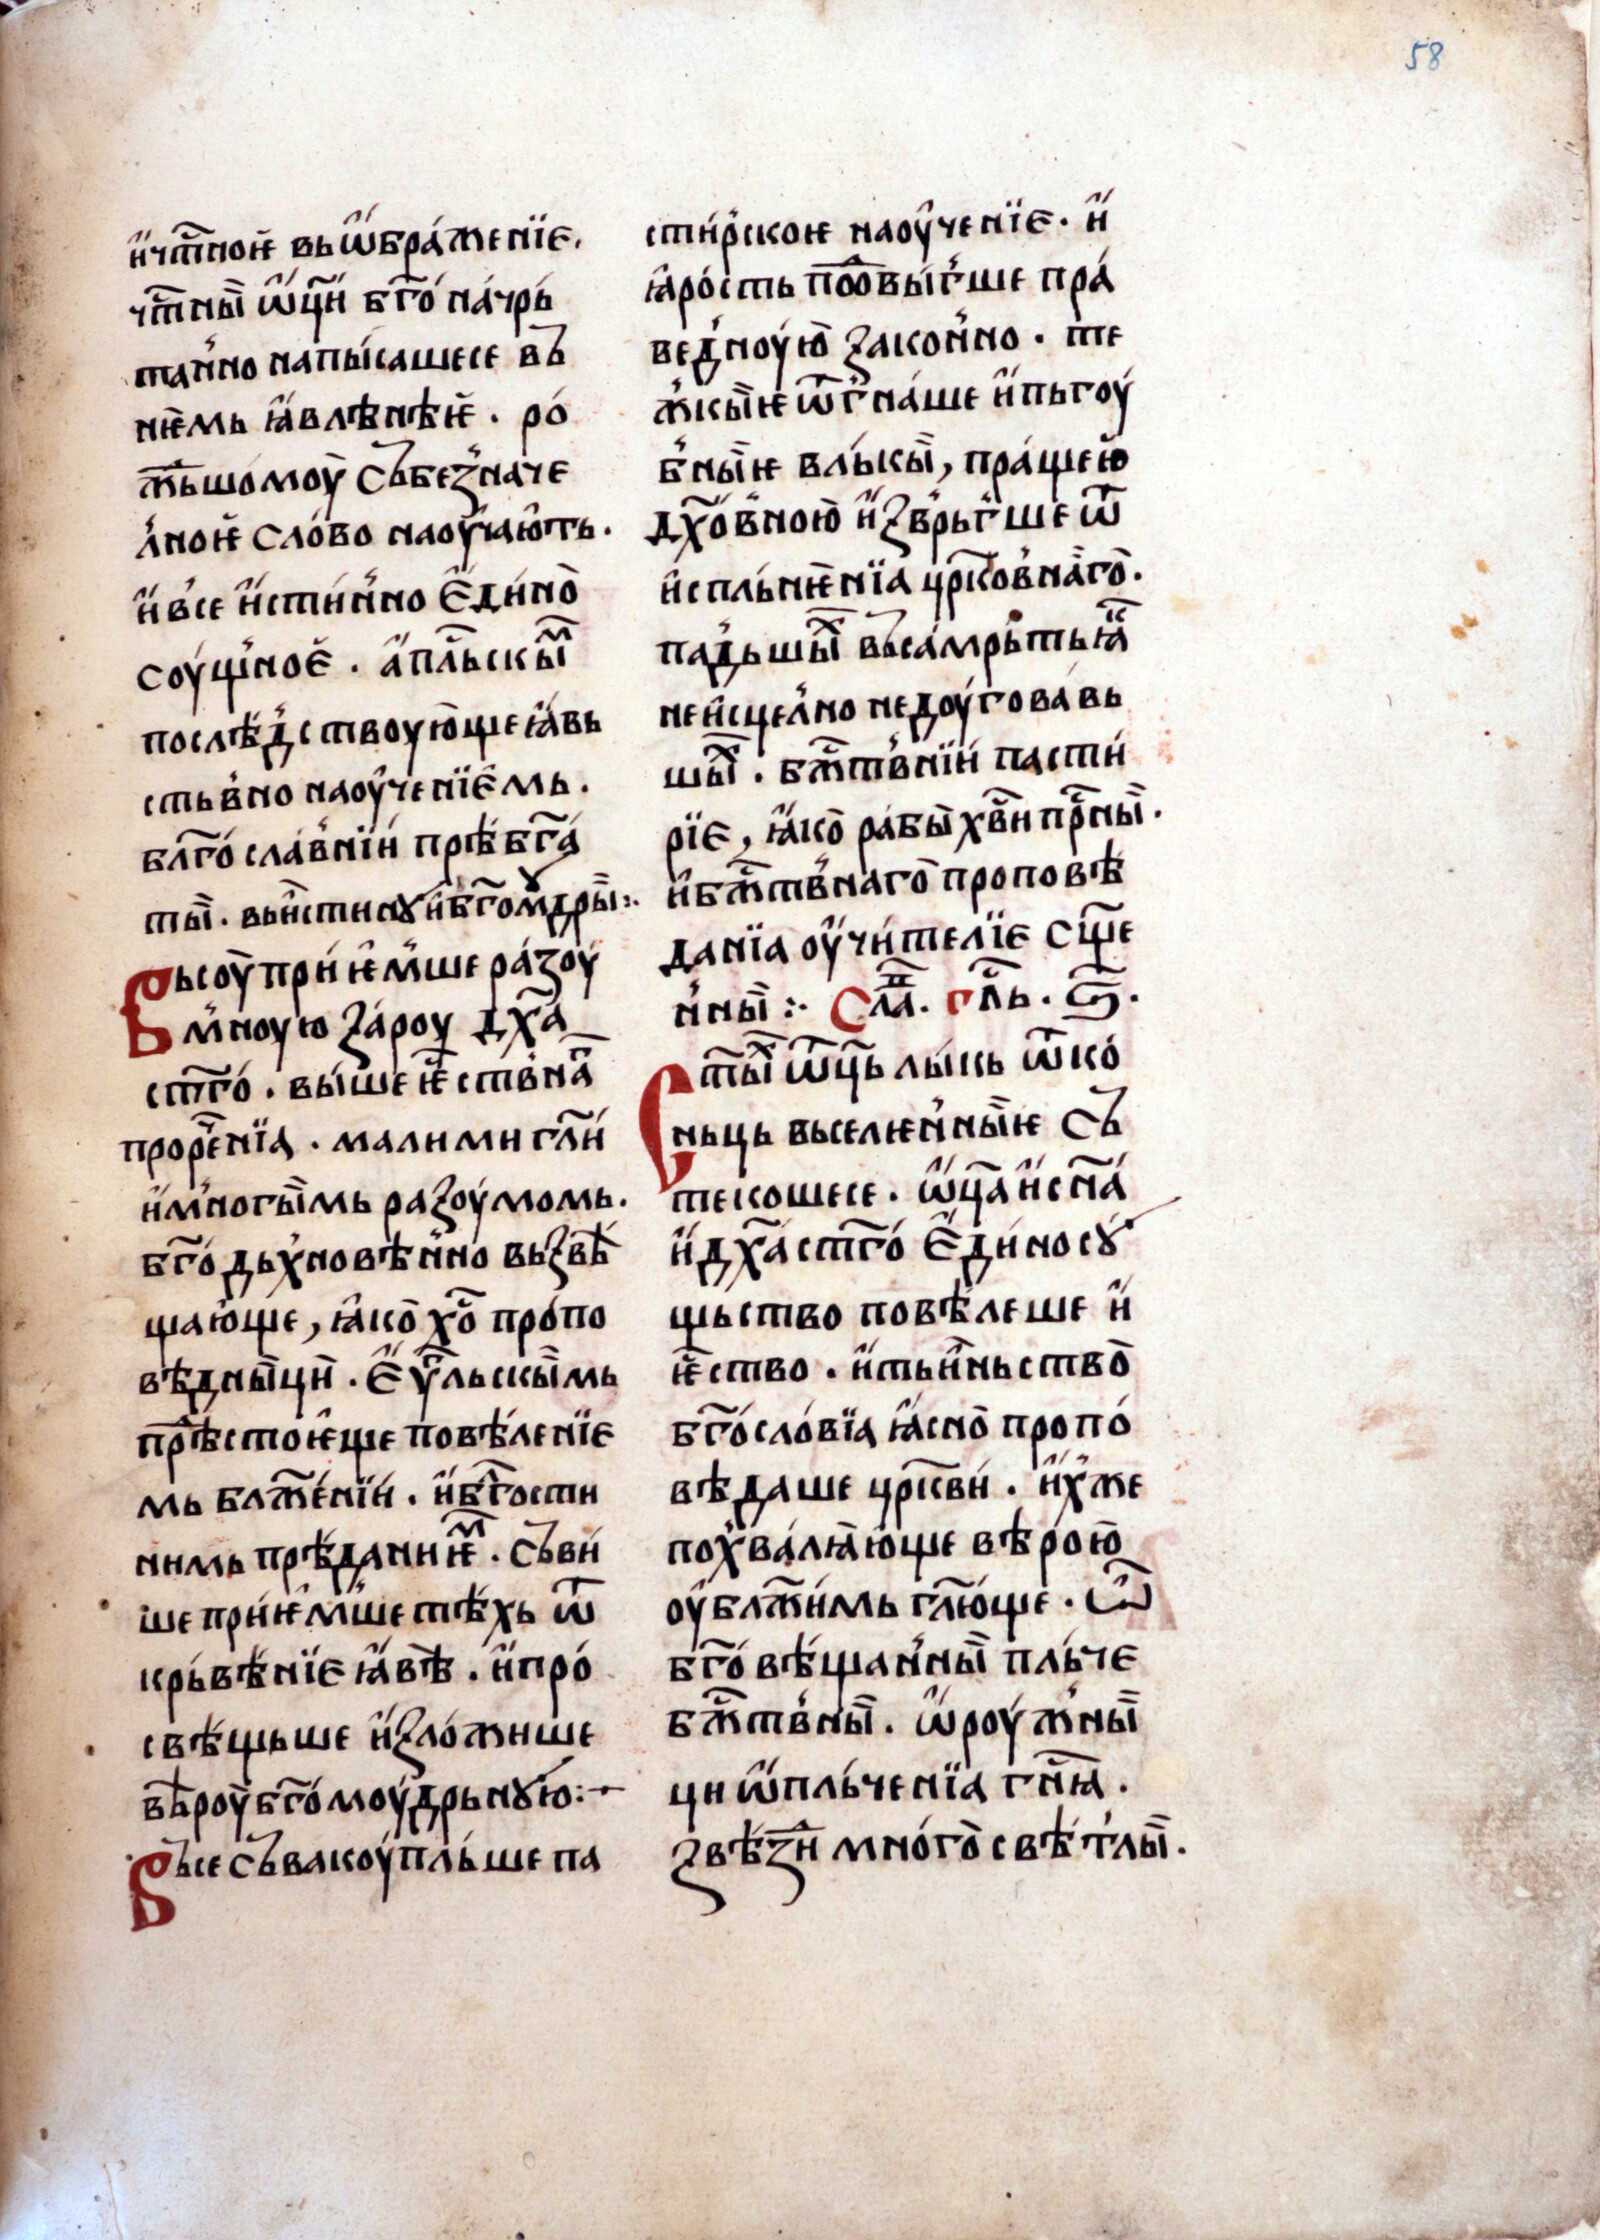 58
и҆чт҃ное҆ вьѡ҆браже́нїе.
чт҃ны̏ ѿц҃и бг҃о́ на́чрь
та́нно напи́сашесе въ
нѥ҆мь ꙗ҆влѣ́нѥ҆. ро́
ж҃ьшо́моу̏ събез̾наче
лноѥ҆ сло́во наоу҆ча́ю҆ть.
и҆ в̾се и҆сти́нно є҆ди́но̏
соу́щноє҆. а҆пⷭ҇льскыⷨ
послѣ́д̾ствоую҆ще ꙗ҆вь
стьв̾но наоу҆че́нїє҆мь.
бл҃го́сла́внїи прѣ́бг҃а́
ты̏. вьи҆стинꙋ и҆бг҃ом꙽дры̏:
Высоу̏ прїи҆ѥ҆м꙽ше ра́зоу
м꙽ноую за́роу дх҃а
ст҃го́. вы́шеѥ҆ст҃в̾наⷢ
прорⷱ҇е́нїа. малими гл҃и́
и҆м꙽ногы̏мь разоу́момь.
бг҃о дьх꙽новѣ́нно вьзвѣ́
щаю҆ще, ꙗ҆ко̏ хⷭ҇о̏ про́по
вѣ́дны̏ци̏. є҆ѵⷢ҇льскы̏мь
прⷣѣстоѥ҆ще повѣ́ленїє
мь блж҃е́нїи. и҆бг҃ости
нимь прѣ́даниѥⷨ. съви́
ше прїи́ѥ҆м꙽ше тѣ́хь ѿ
крьвѣ́нїе ꙗ҆вѣ̏. и҆про́
свѣ́щьше и҆зло́жише
вѣ́роу̏ бг҃о́моу́дрьнꙋю҆:
Въсе съвакоу́пль́ше па
сти́р꙽скоѥ наоу҆че́нїє. и҆
ꙗ҆ро́сть поⷣвы́г꙽ше пра́
вед̾ноую̏ зако́нно. те
ж꙽кы̏ѥ ѿг꙽на́ше и҆пьгоу́
б꙽ны̏ѥ вль́кы̏, пра́щею̏
дх҃о́вною̏ и҆звр꙽ьг꙽ше ѿ
и҆спль́нѥ҆нїа црⷦ҇ов̾на̏го̏.
па́д̾шыⷯ въса́мрьть ꙗⷦ҇
неи҆сце́лно недоу́говавь
шыⷯ. бжⷭ҇тв̾нїи пасти́
рїє, ꙗ҆ко̏ рабы̏ хв҃и прⷣ҇ны̏.
и҆бжⷭ҇тв̾наго̏ проповѣ́
данїа оу҆чи́телїє сщ҃е
н꙽ны̏: Слаⷡ. гла҃ь. ѕ҃.
Ст҃ыⷯ ѿц҃ь лы́кь ѿко
ньць вьселѥн꙽ны̏ѥ съ
текошесе. ѡ҆ц҃а и҆сн҃а́
и҆ дх҃а ст҃го́ є҆ди́носꙋ
щьство повѣ́леше и҆
ѥ҆ство. и҆тьи҆ньство̏
бг҃осло́вїа ꙗ҆сно̏ пропо́
вѣ́даше црⷦ҇ви. и҆х꙽же
пох꙽ва́лꙗю҆ще вѣ́рою̏
оу҆блж҃и́мь гл҃ю́ще. ѽ
бг҃о́вѣ́щан꙽ны̏ пль́че
бжⷭ҇тв̾ны̏. ѡ҆роу́ж꙽ны̏
ци ѡ҆пль́ченїа гнⷭ҇ꙗ.
звѣ́зⷣи мно́го̏свѣ́т꙽лы̏.